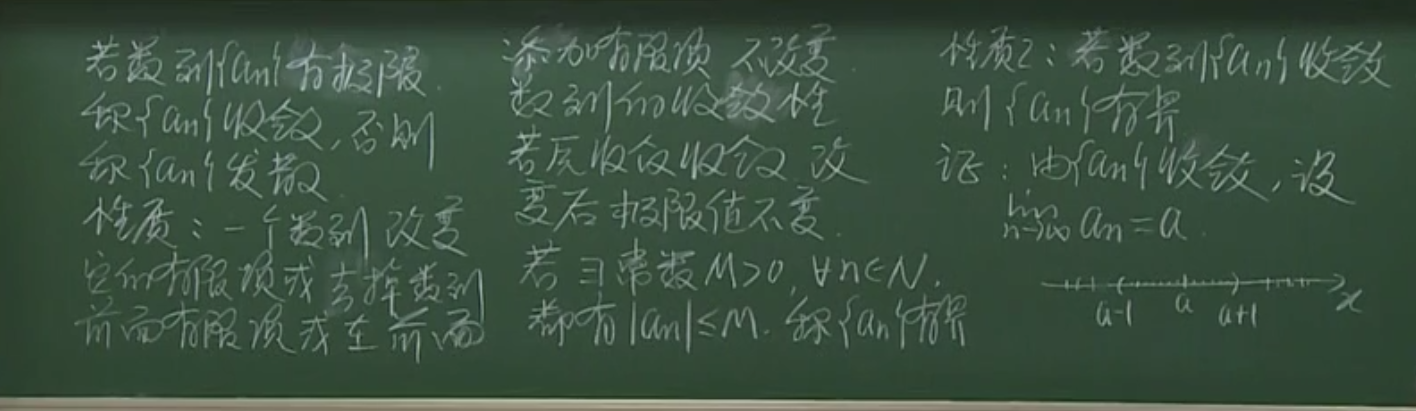 若数列{an}有极限.
称{an}收敛,否则
称{an}发散
性质:一个数列改变
它的有限项或去掉数列
前面有限项或在前面
添加有限项 不改变
数列的收敛性
若原收敛收敛 改
变后极限值不变.
若∃常数M>0,∀n∈N,
都有|an|≤M. 称{an}有界
性质2:若数列{an}收敛
则{an}有界
证:由{an}收敛,设
lim n→∞ an=a.
a-1 a a+1 x